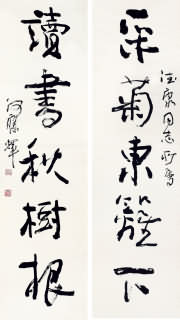 采菊東籬下
讀書秋樹根
何應輝